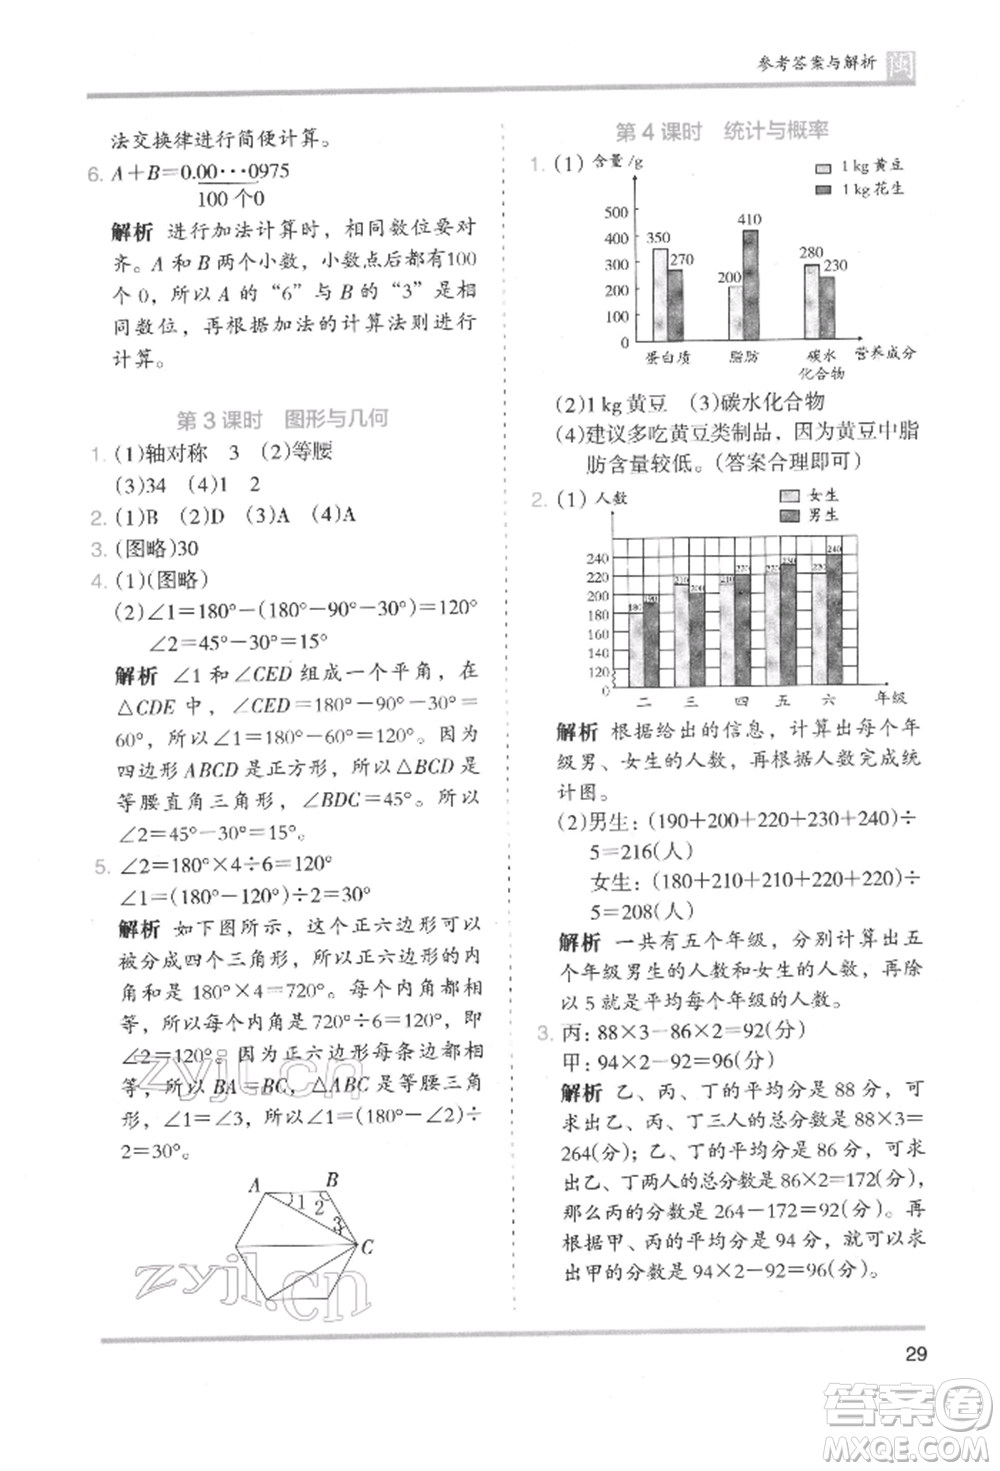 参考答案与解析 闽
法交换律进行简便计算。
6. A+B=0.00···0975
100个0
解析 进行加法计算时，相同数位要对
齐。A 和 B 两个小数，小数点后都有100
个 0，所以 A 的“6”与 B 的“3”是相
同数位，再根据加法的计算法则进行
计算。
第 3 课时 图形与几何
1. (1)轴对称 3 (2)等腰
(3)34 (4)1 2
2. (1)B (2)D (3)A (4)A
3. (图略)30
4. (1)(图略)
(2)∠1=180°-(180°-90°-30°)=120°
∠2=45°-30°=15°
解析 ∠1 和∠CED 组成一个平角，在
△CDE 中，∠CED=180°-90°-30°=
60°，所以∠1=180°-60°=120°。因为
四边形 ABCD 是正方形，所以△BCD 是
等腰直角三角形，∠BDC=45°。所以
∠2=45°-30°=15°。
5. ∠2=180°×4÷6=120°
∠1=(180°-120°)÷2=30°
解析 如下图所示，这个正六边形可以
被分成四个三角形，正六边形的内角
和是180°×4=720°。每个内角都相
等，所以每个内角是720°÷6=120°，即
∠2=120°。因为正六边形每条边都相
等，所以 BA=BC，△ABC 是等腰三角
形，∠1=∠3，所以∠1=(180°-∠2)÷
2=30°。
A B
1 2
3
C
第 4 课时 统计与概率
1. (1) 含量/g
1 kg 黄豆
1 kg 花生
500
400
300
200
100
0
350 270 200 410 280 230
蛋白质 脂肪 碳水 营养成分
化合物
(2)1 kg 黄豆 (3)碳水化合物
(4)建议多吃黄豆类制品，因为黄豆中脂
肪含量较低。(答案合理即可)
2. (1) 人数
女生
男生
240
220
200
180
160
140
120
0
180 190 210 200 210 220 220 230 220 240
二 三 四 五 六 年级
解析 根据给出的信息，计算出每个年
级男、女生的人数，再根据人数完成统
计图。
(2)男生：(190+200+220+230+240)÷
5=216(人)
女生：(180+210+210+220+220)÷
5=208(人)
解析 一共有五个年级，分别计算出五
个年级男生的人数和女生的人数，再除
以 5 就是平均每个年级的人数。
3. 丙：88×3-86×2=92(分)
甲：94×2-92=96(分)
解析 乙、丙、丁的平均分是 88 分，可
求出乙、丙、丁三人的总分数是88×3=
264(分)；乙、丁的平均分是 86 分，可求
出乙、丁两人的总分数是86×2=172(分)，
那么丙的分数是 264-172=92(分)。再
根据甲、丙的平均分是 94 分，可以求
出甲的分数是 94×2-92=96(分)。
zyjl.cn
zyjl.cn
29
答案圈
MXQE.COM